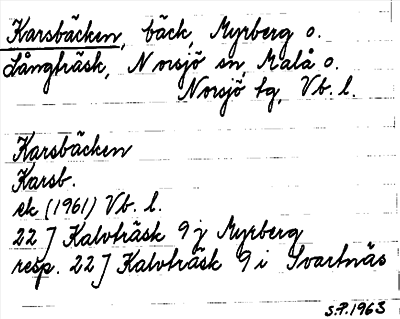 Karsbäcken, bäck, Myrberg o.
Långträsk, Norsjö sn, Malå o.
Norsjö tg, Vb. l.
Karsbäcken
Karsb.
ek (1961) Vb. l.
22 J Kalvträsk 9 j Myrberg
resp. 22 J Kalvträsk 9 i Svartnäs
S.P. 1963